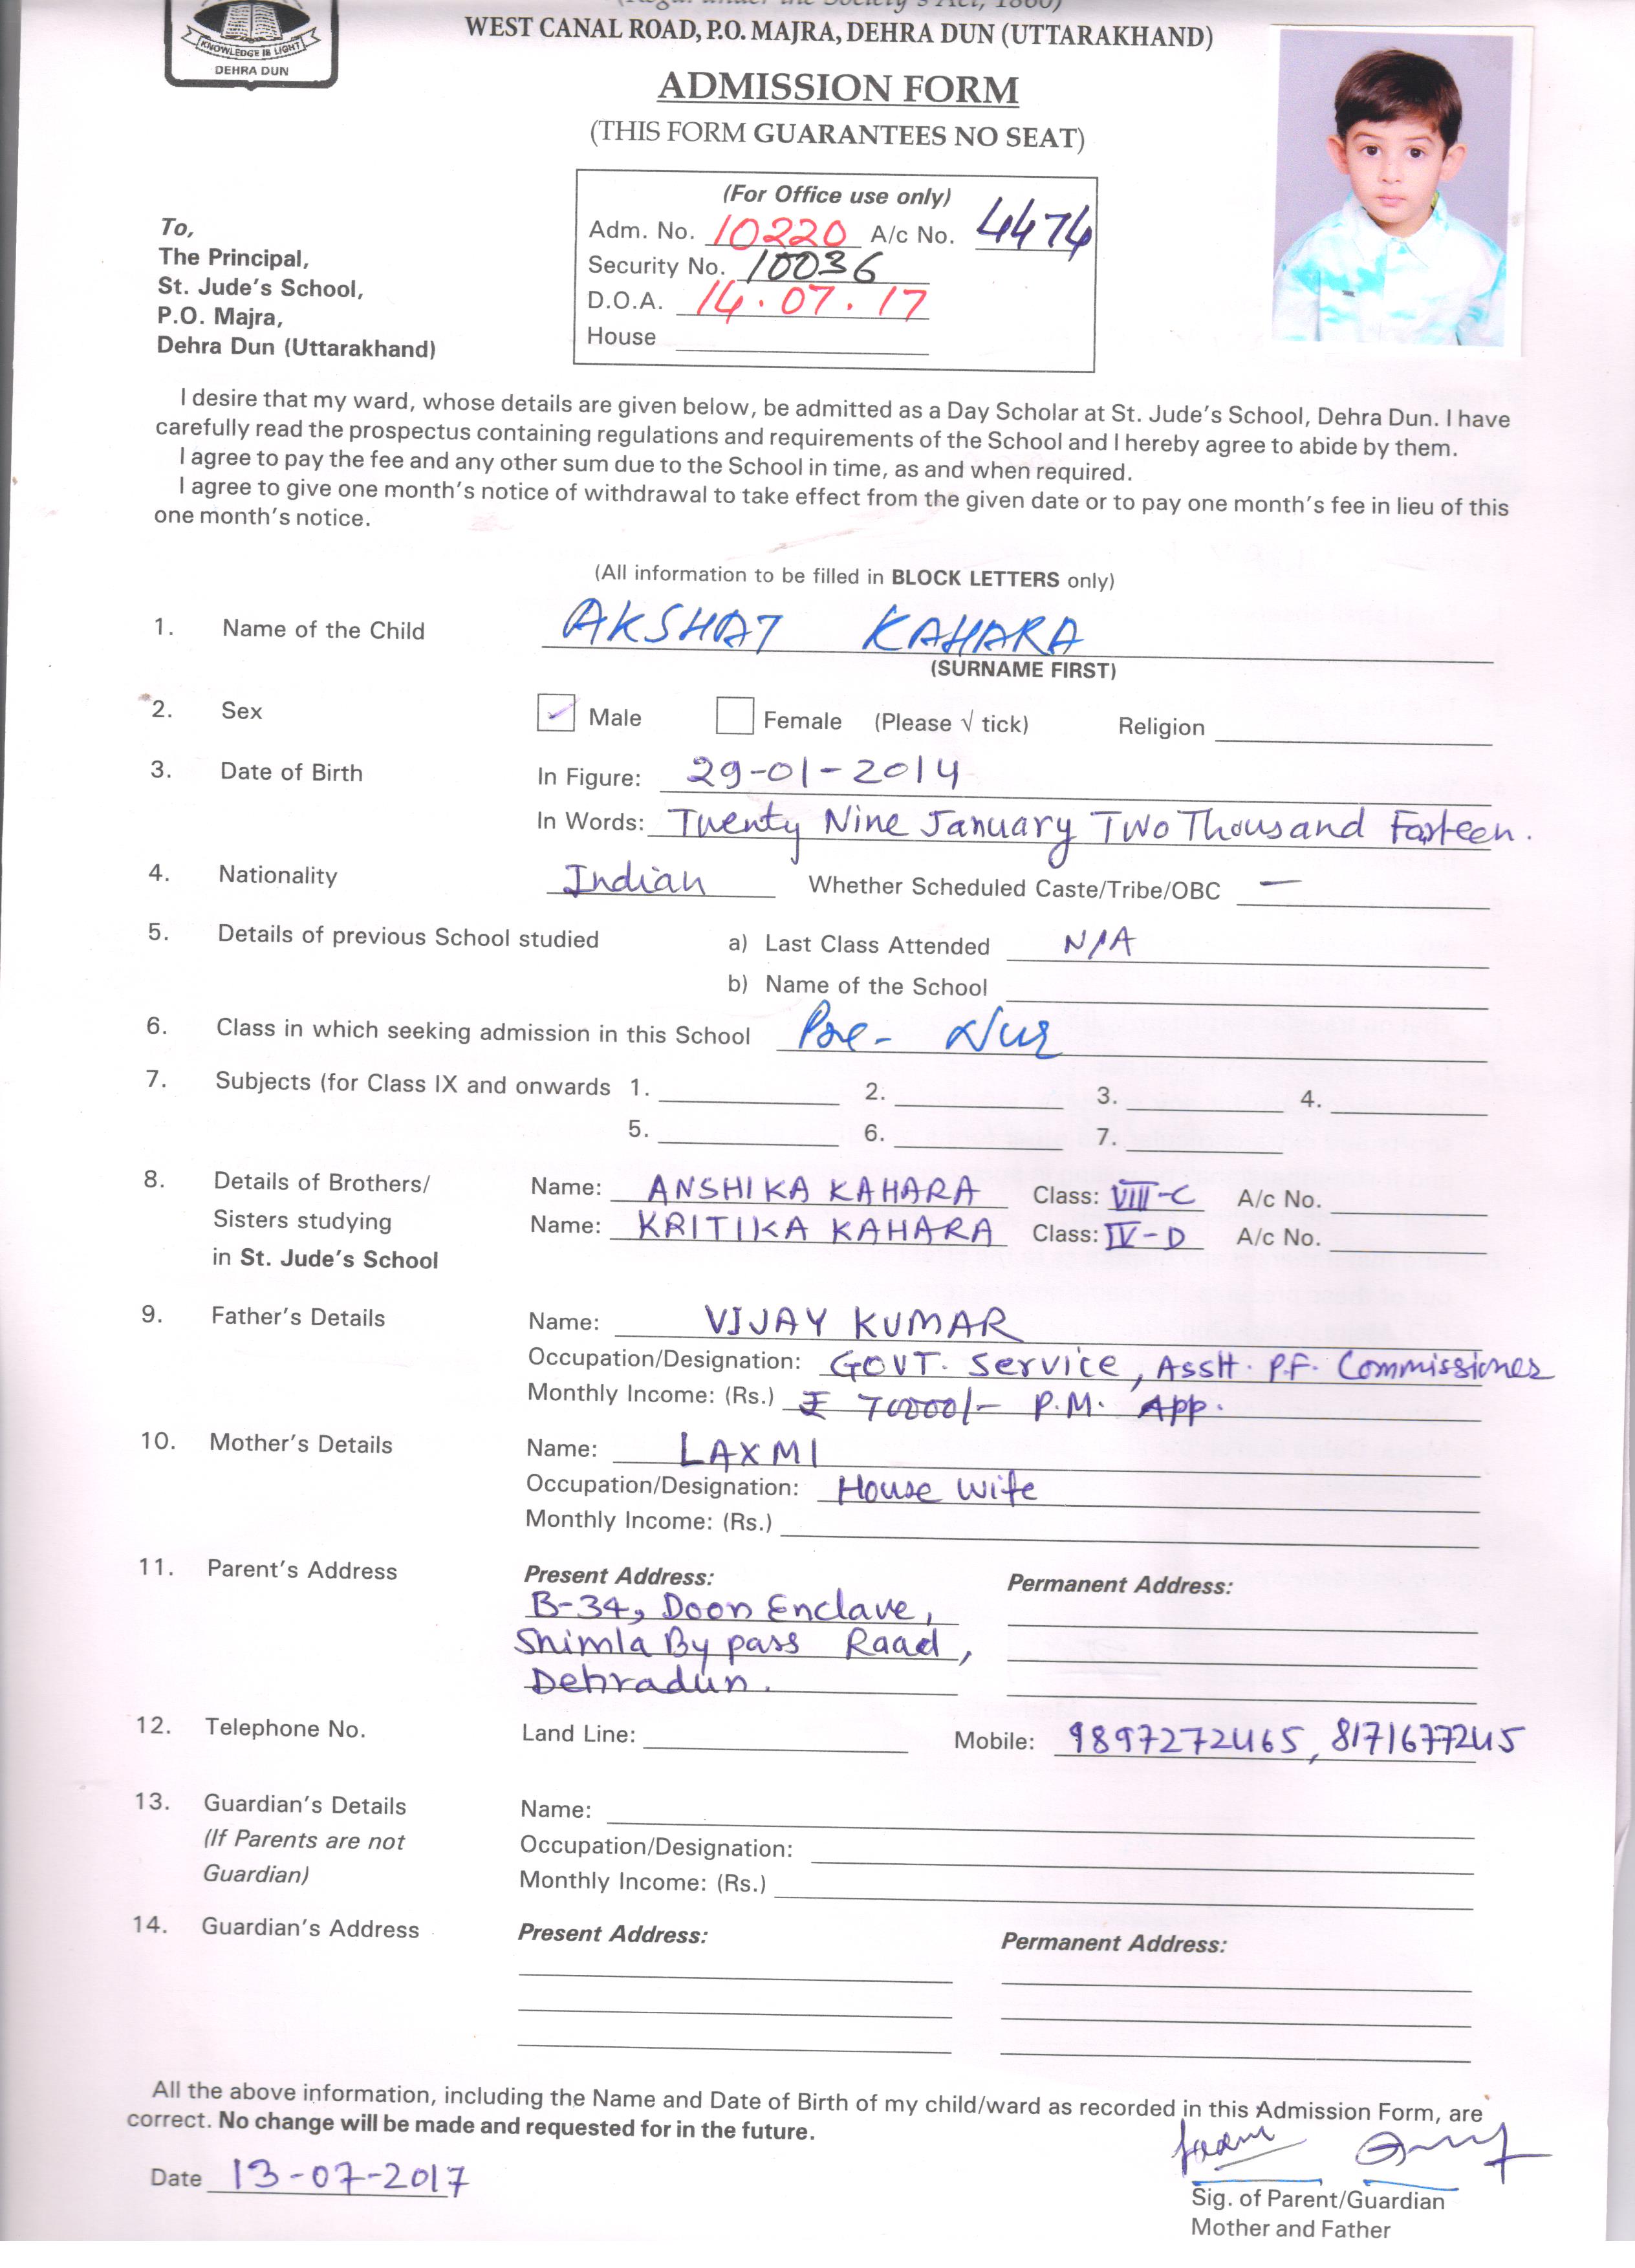 KNOWLEDGE IS LIGHT
DEHRA DUN
WEST CANAL ROAD, P.O. MAJRA, DEHRA DUN (UTTARAKHAND)
ADMISSION FORM
(THIS FORM GUARANTEES NO SEAT)
(For Office use only)
Adm. No. 10220 A/c No. 4474
Security No. 10036
D.O.A. 14.07.17
House
To,
The Principal,
St. Jude's School,
P.O. Majra,
Dehra Dun (Uttarakhand)
I desire that my ward, whose details are given below, be admitted as a Day Scholar at St. Jude's School, Dehra Dun. I have
carefully read the prospectus containing regulations and requirements of the School and I hereby agree to abide by them.
I agree to pay the fee and any other sum due to the School in time, as and when required.
I agree to give one month's notice of withdrawal to take effect from the given date or to pay one month's fee in lieu of this
one month's notice.
(All information to be filled in BLOCK LETTERS only)
1. Name of the Child AKSHAT KAHARA
(SURNAME FIRST)
2. Sex ✓ Male Female (Please √ tick) Religion
3. Date of Birth In Figure: 29-01-2014
In Words: Twenty Nine January Two Thousand Forteen.
4. Nationality Indian Whether Scheduled Caste/Tribe/OBC —
5. Details of previous School studied a) Last Class Attended N/A
b) Name of the School
6. Class in which seeking admission in this School Pre- Nur
7. Subjects (for Class IX and onwards 1. 2. 3. 4.
5. 6. 7.
8. Details of Brothers/ Name: ANSHIKA KAHARA Class: VIII-C A/c No.
Sisters studying Name: KRITIKA KAHARA Class: IV-D A/c No.
in St. Jude's School
9. Father's Details Name: VIJAY KUMAR
Occupation/Designation: GOVT. Service, Asstt. P.F. Commissioner
Monthly Income: (Rs.) ₹ 70000/- P.M. App.
10. Mother's Details Name: LAXMI
Occupation/Designation: House Wife
Monthly Income: (Rs.)
11. Parent's Address Present Address: Permanent Address:
B-34, Doon Enclave,
Shimla By pass Road,
Dehradun.
12. Telephone No. Land Line: Mobile: 9897272465, 8171677245
13. Guardian's Details Name:
(If Parents are not Occupation/Designation:
Guardian) Monthly Income: (Rs.)
14. Guardian's Address Present Address: Permanent Address:
All the above information, including the Name and Date of Birth of my child/ward as recorded in this Admission Form, are
correct. No change will be made and requested for in the future.
Date 13-07-2017
Sig. of Parent/Guardian
Mother and Father